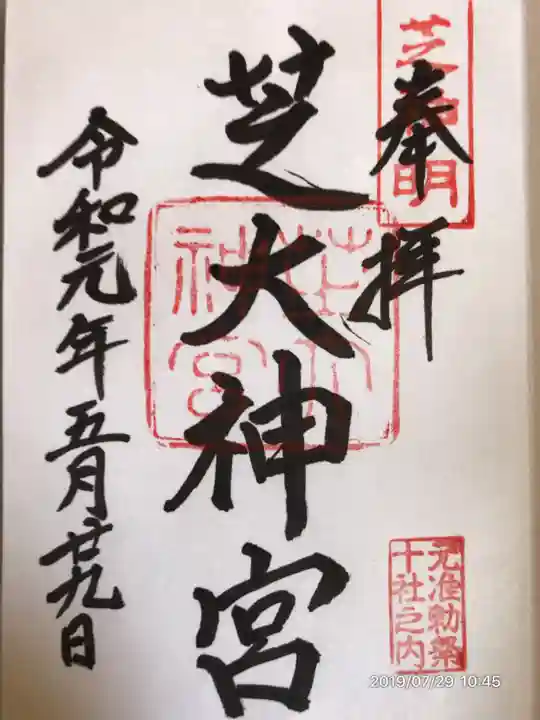 芝神明
奉拝
芝大神宮
芝大神宮
令和元年五月廿九日
元准勅祭
十社之内
2019/07/29 10:45